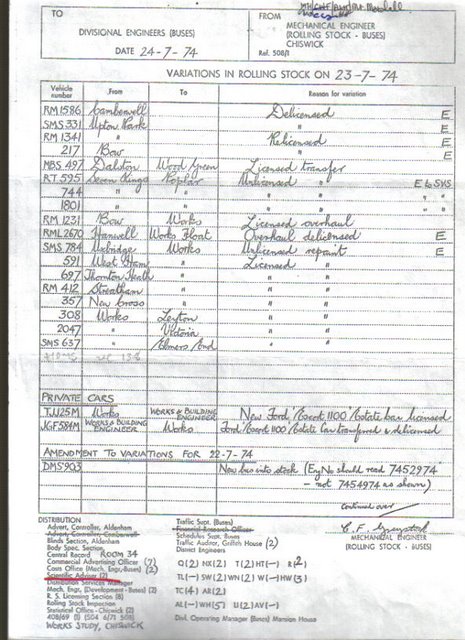 TO
FROM
DIVISIONAL ENGINEERS (BUSES)
MECHANICAL ENGINEER
(ROLLING STOCK - BUSES)
CHISWICK
DATE 24-7-74
Ref. 508/1
VARIATIONS IN ROLLING STOCK ON 23-7-74
Vehicle number From To Reason for variation
RM 1586 Camberwell Delicensed E
SMS 331 Upton Park " E
RM 1341 " Relicensed E
217 Bow " E
MBS 497 Dalston Wood Green Licensed transfer
RT 595 Seven Kings Poplar Unlicensed " E to SVS
744 " " " " " "
1801 " " " " " "
RM 1231 Bow Works Licensed overhaul
RML 2670 Hanwell Works Float Overhaul delicensed E
SMS 784 Uxbridge Works Unlicensed repaint E
591 West Ham " Licensed "
697 Thornton Heath " " "
RM 412 Streatham " " "
357 New Cross " " "
308 Works Leyton " "
2047 " Victoria " "
SMS 637 " Elmers End " "
PRIVATE CARS
TJJ25M Works WORKS & BUILDING ENGINEER New Ford Escort 1100 Estate car licensed
JGF584M WORKS & BUILDING ENGINEER Works Ford Escort 1100 Estate Car transferred & delicensed
AMENDMENT TO VARIATIONS FOR 22-7-74
DMS 903 New bus into stock (Eng No should read 7452974
- not 7454974 as shown)
Continued over
DISTRIBUTION
Advert. Controller, Aldenham
Advert. Controller, Camberwell
Blinds Section, Aldenham
Body Spec. Section
Central Record ROOM 34
Commercial Advertising Officer (7)
Costs Office (Mech. Engr.-Buses) (2)
Scientific Adviser (2)
Distribution Services Manager
Mech. Engr. (Development - Buses) (2)
R. S. Licensing Section (8)
Rolling Stock Inspection
Statistical Office - Chiswick (2)
408/69 (1) (504 6/71 508)
WORKS STUDY, CHISWICK
Traffic Supt. (Buses)
Financial Research Officer
Schedules Supt. Buses
Traffic Auditor, Griffith House (2)
District Engineers
Q(2) NX(2) T(2) HT(-) R(2)
TL(-) SW(2) WN(2) W(-) HW(3)
TC(4) AR(2)
AL(-) WH(5) U(2) AV(-)
Divl. Operating Manager (Buses) Mansion House
MECHANICAL ENGINEER
(ROLLING STOCK - BUSES)